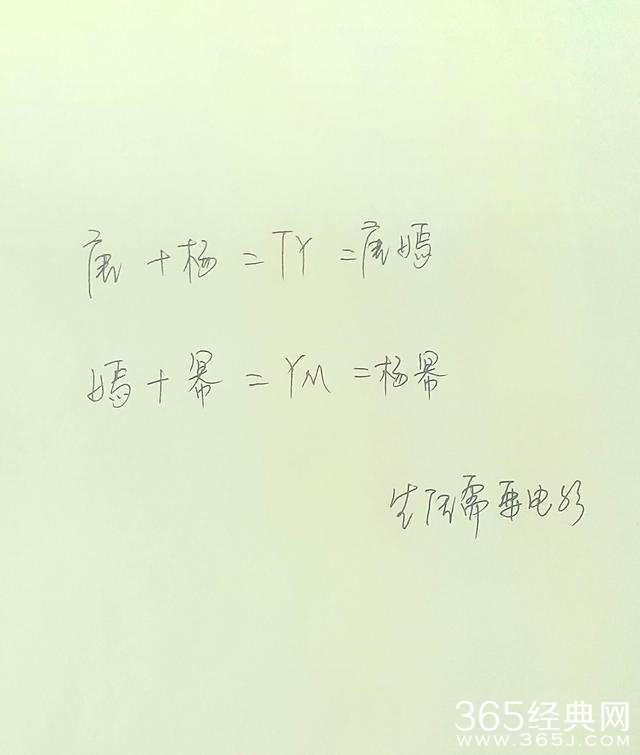 唐+杨=TY=唐嫣
嫣+幂=YM=杨幂
生活需要电影
365经典网
WWW.365J.COM